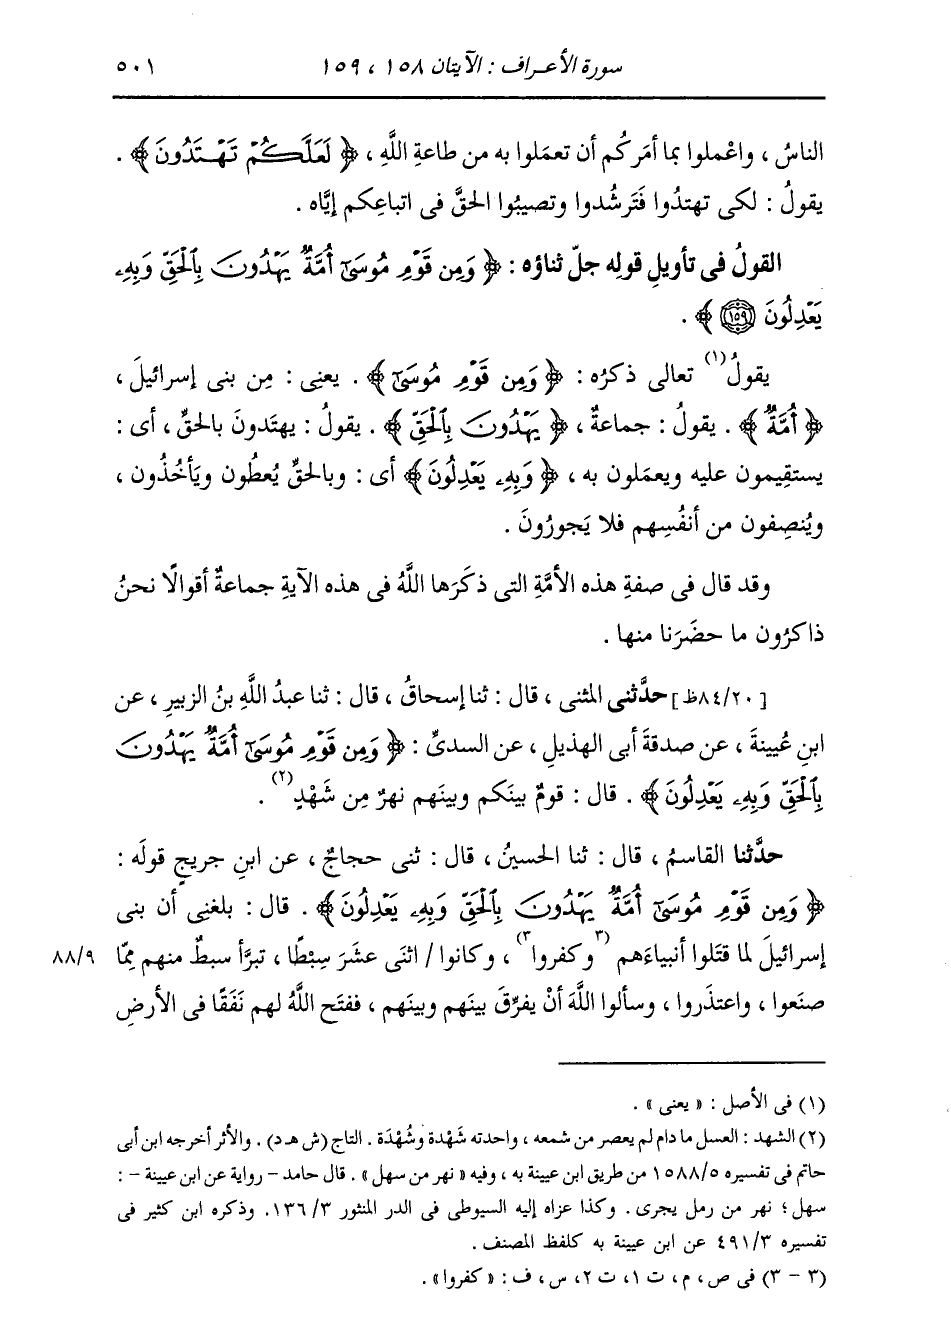 سورة الأعراف : الآيتان ١٥٨ ، ١٥٩ ٥٠١
الناسُ ، واعْملوا بما أمَركُم أن تعمَلوا به من طاعةِ اللَّهِ ، ﴿ لَعَلَّكُمْ تَهْتَدُونَ ﴾ .
يقولُ : لكى تهتدُوا فَتَرشُدوا وتصيبُوا الحقَّ فى اتباعِكم إيَّاه .
القولُ فى تأويلِ قولِه جلّ ثناؤه : ﴿ وَمِن قَوْمِ مُوسَىٰٓ أُمَّةٌ يَهْدُونَ بِٱلْحَقِّ وَبِهِۦ
يَعْدِلُونَ ۝١٥٩ ﴾ .
يقولُ(١) تعالى ذكرُه : ﴿ وَمِن قَوْمِ مُوسَىٰٓ ﴾ . يعنِى : مِن بنى إسرائيلَ ،
﴿ أُمَّةٌ ﴾ . يقولُ : جماعةٌ ، ﴿ يَهْدُونَ بِٱلْحَقِّ ﴾ . يقولُ : يهتَدونَ بالحقِّ ، أى :
يستقِيمون عليه ويعمَلون به ، ﴿ وَبِهِۦ يَعْدِلُونَ ﴾ أى : وبالحقِّ يُعطُون ويَأخُذُون ،
ويُنصِفون من أنفُسِهم فلا يَجورُونَ .
وقد قال فى صفةِ هذه الأمَّةِ التى ذكَرَها اللَّهُ فى هذه الآيةِ جماعةٌ أقوالًا نحنُ
ذاكرُون ما حضَرَنا منها .
[٨٤/٢٠ظ] حدَّثنى المثنى ، قال : ثنا إسحاقُ ، قال : ثنا عبدُ اللَّهِ بنُ الزبيرِ ، عن
ابنِ عُيينةَ ، عن صدقةَ أبى الهذيلِ ، عن السدىِّ : ﴿ وَمِن قَوْمِ مُوسَىٰٓ أُمَّةٌ يَهْدُونَ
بِٱلْحَقِّ وَبِهِۦ يَعْدِلُونَ ﴾ . قال : قومٌ بينَكم وبينَهم نهرٌ مِن شَهْدٍ(٢) .
حدَّثنا القاسمُ ، قال : ثنا الحسينُ ، قال : ثنى حجاجٌ ، عن ابنِ جريجٍ قولَه :
﴿ وَمِن قَوْمِ مُوسَىٰٓ أُمَّةٌ يَهْدُونَ بِٱلْحَقِّ وَبِهِۦ يَعْدِلُونَ ﴾ . قال : بلغنِى أن بنى
إسرائيلَ لما قتَلوا أنبياءَهم (٣وكفروا٣) ، وكانوا / اثنَى عشَرَ سِبْطًا ، تبرَّأ سبطٌ منهم مِمّا ٨٨/٩
صنَعوا ، واعتذَروا ، وسألوا اللَّهَ أنْ يفرِّقَ بينَهم وبينَهم ، ففتَح اللَّهُ لهم نَفَقًا فى الأرضِ
(١) فى الأصل : « يعنى » .
(٢) الشهد : العسل ما دام لم يعصر من شمعه ، واحدته شَهْدة وشُهْدَة . التاج (ش هـ د) . والأثر أخرجه ابن أبى
حاتم فى تفسيره ١٥٨٨/٥ من طريق ابن عيينة به ، وفيه « نهر من سهل » . قال حامد – رواية عن ابن عيينة – :
سهل ؛ نهر من رمل يجرى . وكذا عزاه إليه السيوطى فى الدر المنثور ١٣٦/٣ . وذكره ابن كثير فى
تفسيره ٤٩١/٣ عن ابن عيينة به كلفظ المصنف .
(٣ – ٣) فى ص ، م ، ت ١، ت ٢، س ، ف : « كفروا » .